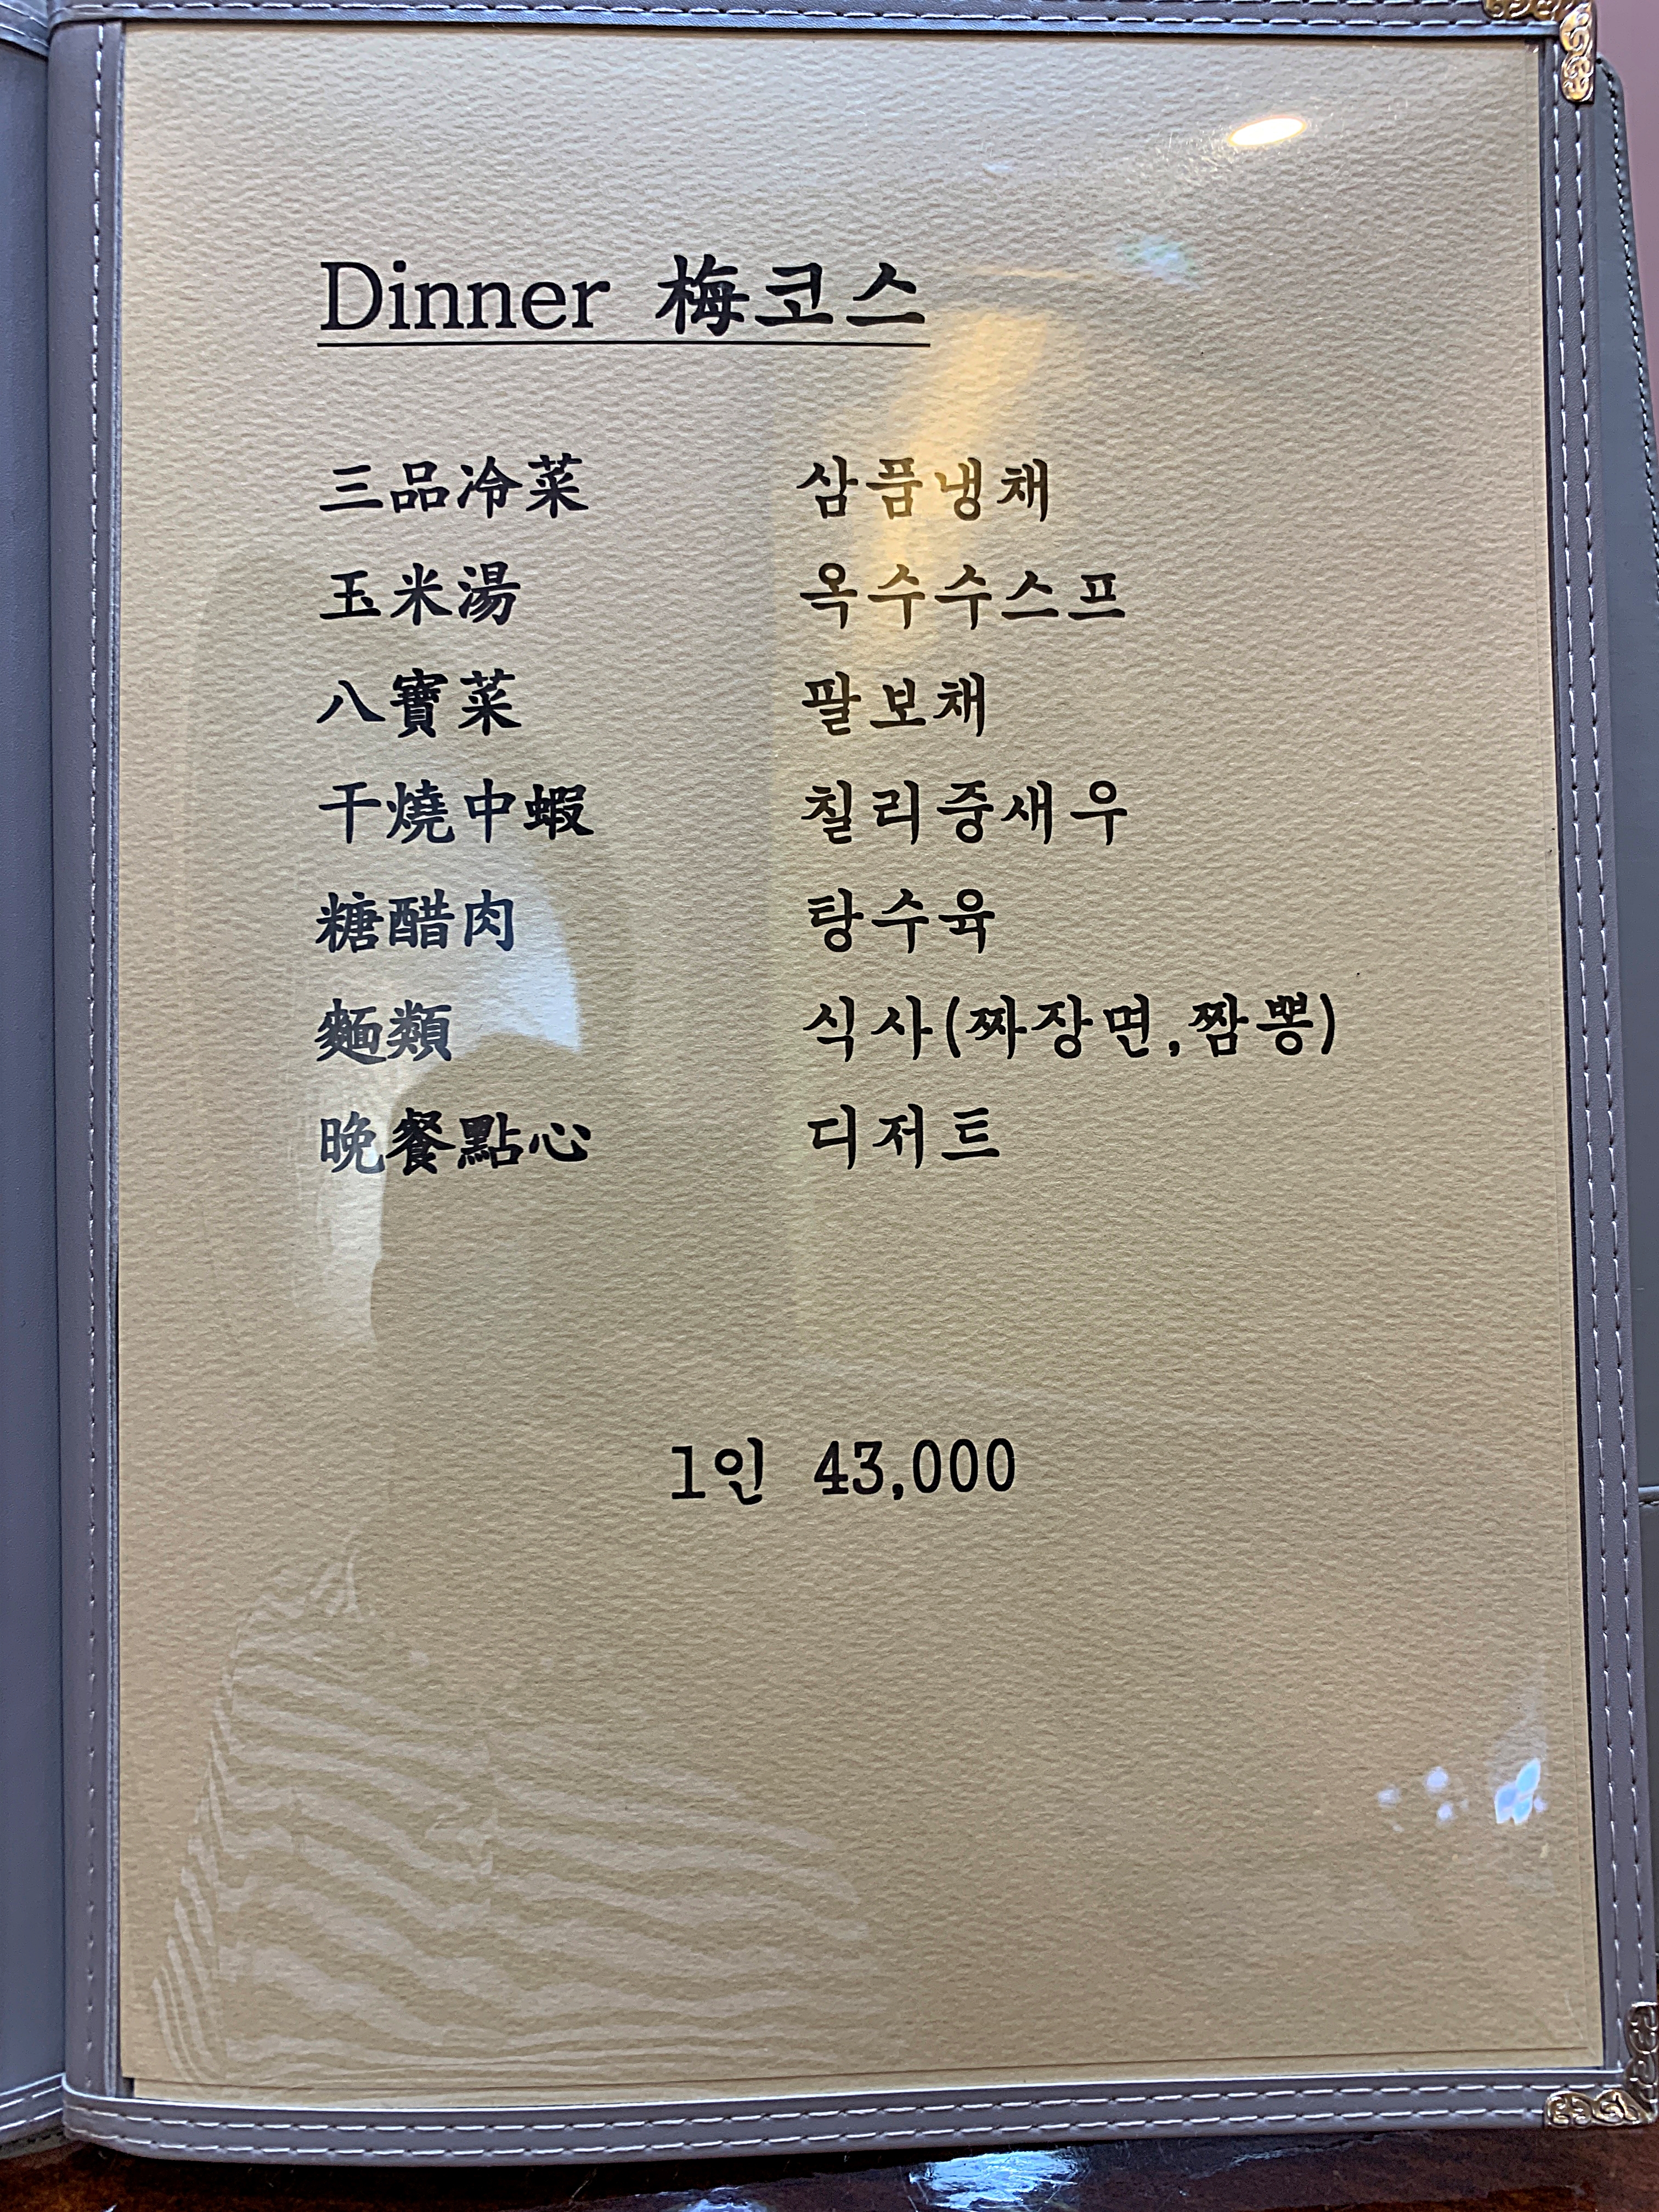 Dinner 梅코스
三品冷菜 삼품냉채
玉米湯 옥수수스프
八寶菜 팔보채
干燒中蝦 칠리중새우
糖醋肉 탕수육
麵類 식사(짜장면,짬뽕)
晚餐點心 디저트
1인 43,000